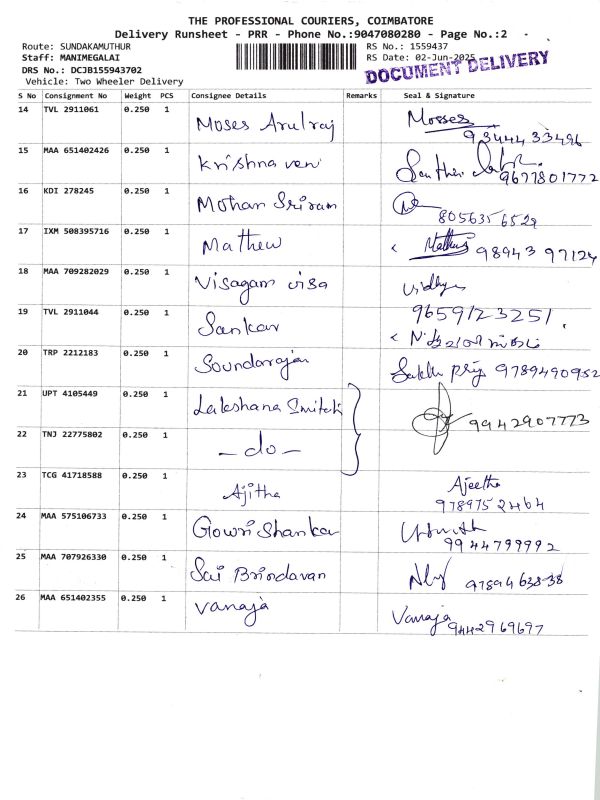 THE PROFESSIONAL COURIERS, COIMBATORE
Delivery Runsheet - PRR - Phone No.:9047080280 - Page No.:2
Route: SUNDAKAMUTHUR
RS No.: 1559437
Staff: MANIMEGALAI
RS Date: 02-Jun-2025
DRS No.: DCJB155943702
DOCUMENT DELIVERY
Vehicle: Two Wheeler Delivery
S No Consignment No Weight PCS Consignee Details Remarks Seal & Signature
14 TVL 2911061 0.250 1 Moses Arulraj Moeses
9344433496
15 MAA 651402426 0.250 1 Krishna veni
9677801772
16 KDI 278245 0.250 1 Mohan Sriram
8056356529
17 IXM 508395716 0.250 1 Mathew Mathew 98943 97124
18 MAA 709282029 0.250 1 Visagam visa Vidhya
19 TVL 2911044 0.250 1 Sankar 9659123251
20 TRP 2212183 0.250 1 Soundarajan 9789490952
21 UPT 4105449 0.250 1 Lakshana Smitch 9942907773
22 TNJ 22775802 0.250 1 - do -
23 TCG 41718588 0.250 1 Ajitha Ajeetha
9789752464
24 MAA 575106733 0.250 1 Gowri Shankar
9944799992
25 MAA 707926330 0.250 1 Sai Brindavan 9789463838
26 MAA 651402355 0.250 1 Vanaja Vanaja
9442969697